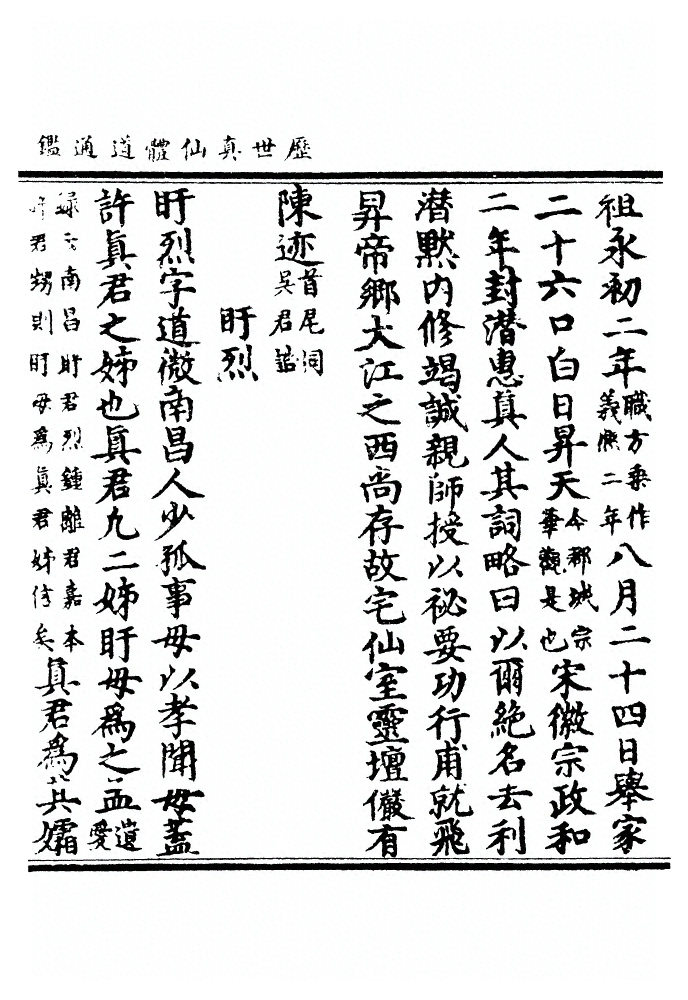 歷世真仙體道通鑑
祖永初二年職方乗作義熈二年八月二十四日舉家
二十六口白日昇天今郡城宗華觀是也宋徽宗政和
二年封潛惠真人其詞略曰以爾絶名去利
潛黙內修竭誠親師授以祕要功行甫就飛
昇帝鄉大江之西尚存故宅仙室靈壇儼有
陳迹首尾詞吳君誥
盱烈
盱烈字道微南昌人少孤事母以孝聞母蓋
許真君之姊也真君九二姊盱母為之孟遺愛
錄云南昌盱君烈鍾離君嘉本許君甥則盱母為真君姊信矣真君為其孀